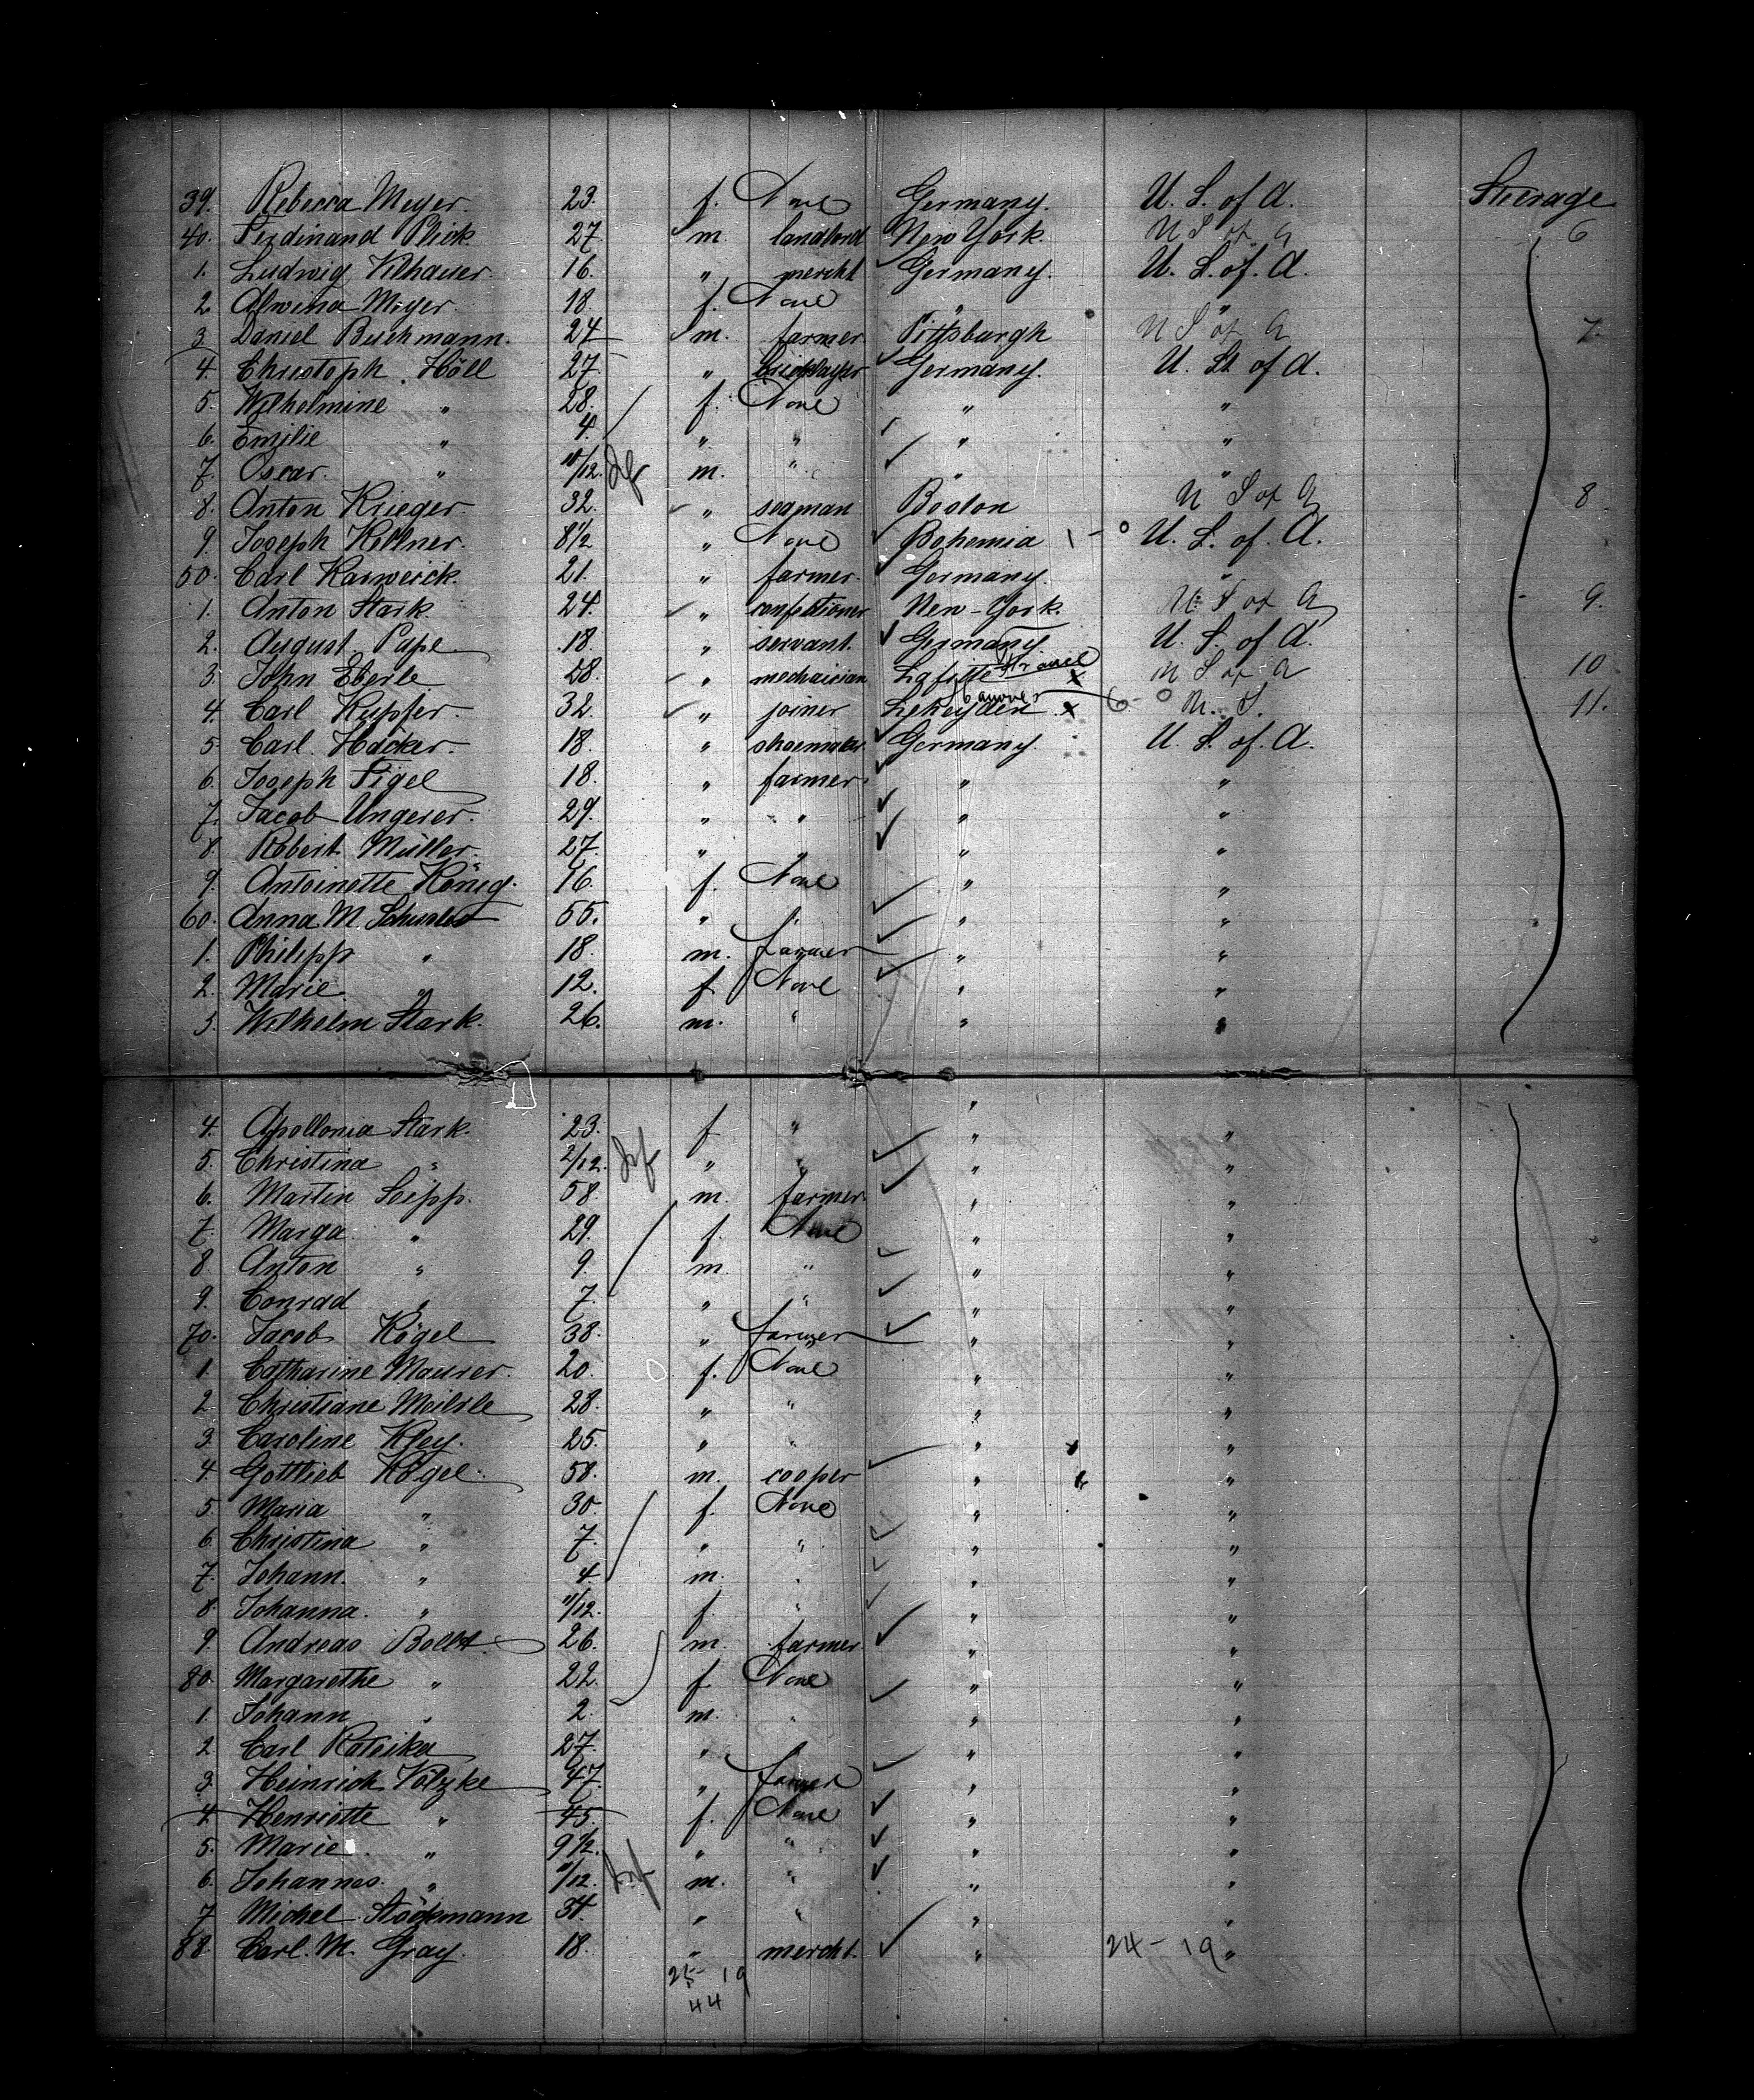 39. Rebecca Meyer. 23. f. None Germany. U. S. of A. Steerage
40. Ferdinand Plick 27. m. landlord New York. U S of A 6
1. Ludwig Vilhauer. 16. " mercht Germany. U. S. of. A.
2 Alwina Meyer. 18. f. None " "
3 Daniel Buchmann. 24 m. farmer Pittsburgh U S of A 7.
4. Christoph Höll 27. " bricklayer Germany. U. St. of A.
5. Wilhelmine " 28. f. None " "
6. Emilie " 4. " " " "
7. Oscar. " 10/12. Inf m. " " "
8. Anton Krieger. 32. " seaman Boston U S of A 8.
9. Joseph Kellner. 8 1/2 " None Bohemia 1 - 0 U. S. of. A.
50. Carl Karweick. 21. " farmer. Germany. "
1. Anton Stark 24. " confectioner New-York. U. S of A 9.
2. August Pape 18. " servant. Germany. U. S. of A.
3. John Eberle 28. " mechanician Lafitte x U S of A 10
4. Carl Kupfer. 32. " joiner Hanover x 6 - 0 U. S. 11.
5. Carl Häcker. 18. " shoemaker Germany. U. S. of. A.
6. Joseph Figel 18. " farmer. " "
7. Jacob Ungerer. 29. " " " "
8. Robert Müller. 27. " " " "
9. Antoinette König. 16. f. None " "
60. Anna M. Schuster 55. " " " "
1. Philipp " 18. m. farmer " "
2. Marie " 12. f. None " "
3. Wilhelm Stark. 26. m. " " "
4. Apollonia Stark. 23. f " " "
5. Christina " 2/12. Inf " " " "
6. Martin Seipp. 58. m. farmer. " "
7. Marga " 29. f. None " "
8. Anton " 9. m. " " "
9. Conrad " 7. " " " "
70. Jacob Kögel 38. " farmer " "
1. Catharine Maurer. 20. f. None " "
2 Christiane Meilsle 28. " " " "
3. Caroline Kley. 25. " " " "
4 Gottlieb Kögel. 58. m. cooper " "
5. Maria " 30. f. None " "
6. Christina " 7. " " " "
7. Johann. " 4. m. " " "
8. Johanna. " 11/12. f. " " "
9. Andreas Bollt 26. m. farmer " "
80. Margarethe " 22. f. None " "
1. Johann " 2. m. " " "
2. Carl 27. " " "
3. Heinrich Völzke 47. " farmer " "
4. Henriette " 45. f. None " "
5. Marie " 9 1/2. " " " "
6. Johannes. " 11/12. Inf m. " " "
7. Michel Stöckmann 34. " " " "
88. Carl. M. Gray. 18. " mercht. " 24 - 19 "
25 - 19
44